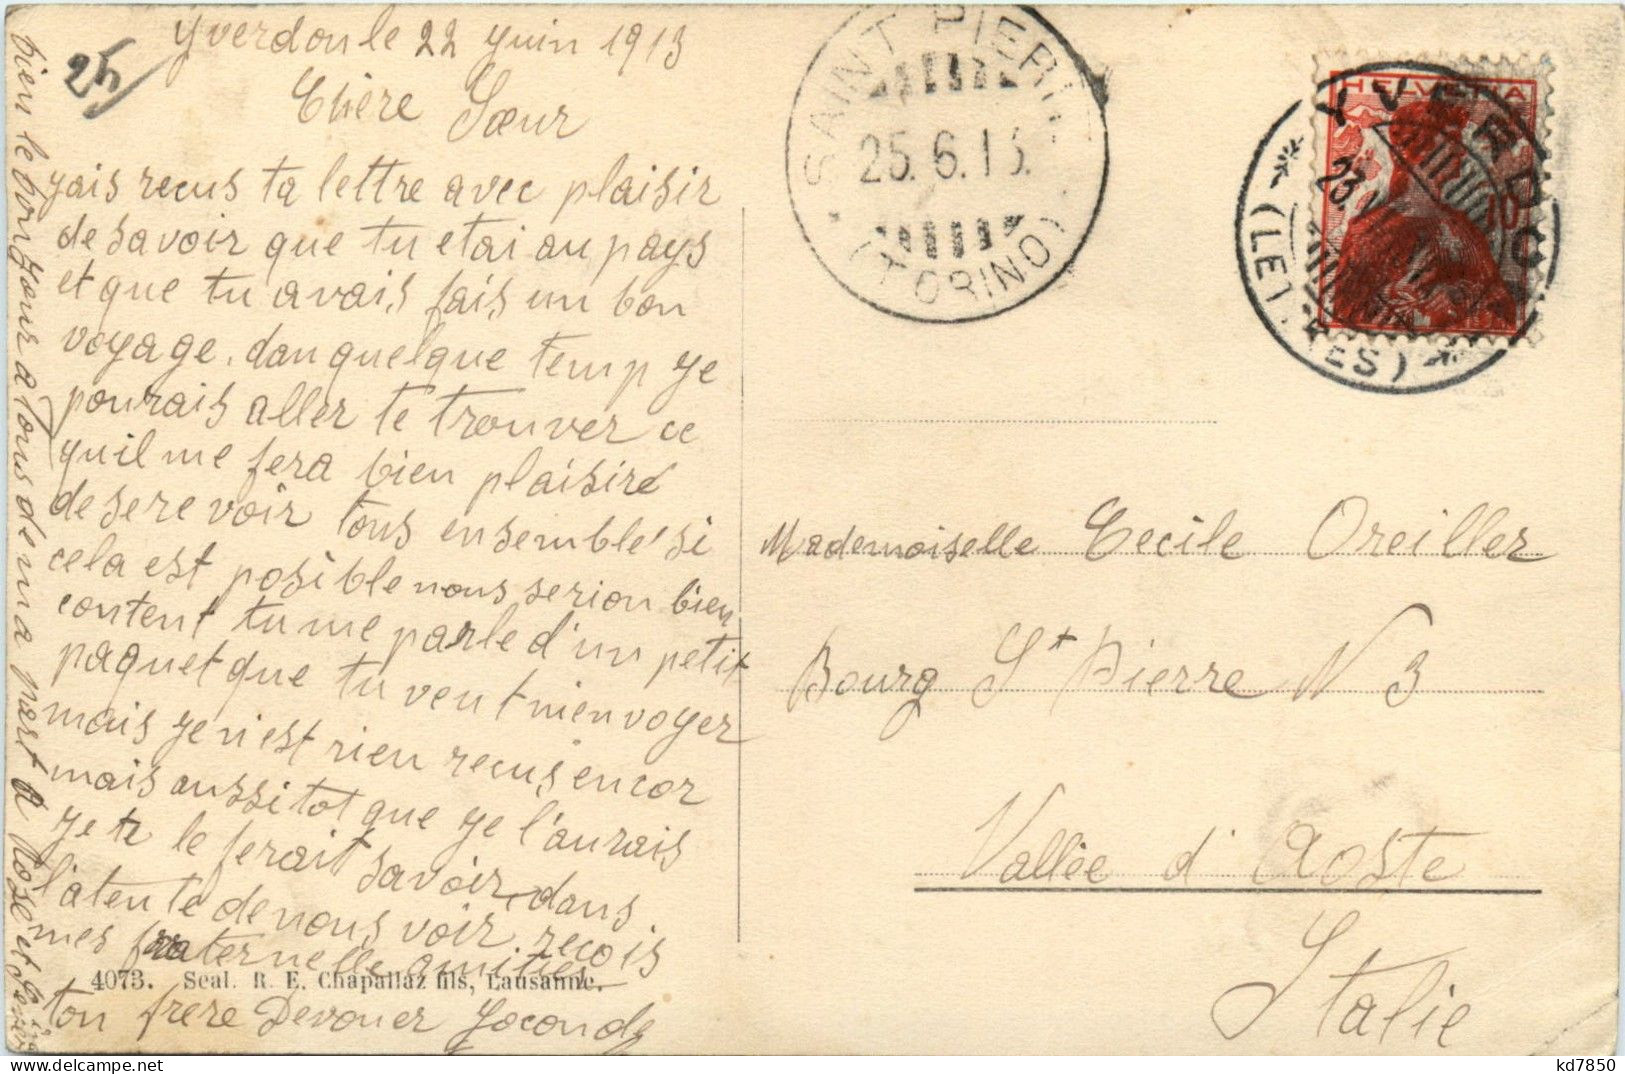 Yverdon le 22 Yuin 1913
25
Chère Sœur
yais recus ta lettre avec plaisir
de savoir que tu etai au pays
et que tu avais fais un bon
voyage. dan quelque temp ye
pourais aller te trouver ce
quil me fera bien plaisire
de sere voir tous ensemble si
cela est posible nous serion bien
content tu me parle d'un petit
paquet que tu veut m'envoyer
mais ye n'est rien recus encor
mais aussitot que ye l'aurais
ye te le ferait savoir, dans
l'atente de nous voir recois
mes fraternelle amities
ton frere Devouer Yoconde
bien le bonjour a tous de ma part a
4073. Seal. R. E. Chapallaz fils, Lausanne.
SAINT PIERRE
25.6.13.
(TORINO)
HELVETIA
10
YVERDON
23.
(LETTRES)
Mademoiselle Cecile Oreiller
Bourg St Pierre N 3
Vallée d' Aoste
Italie
kd7850